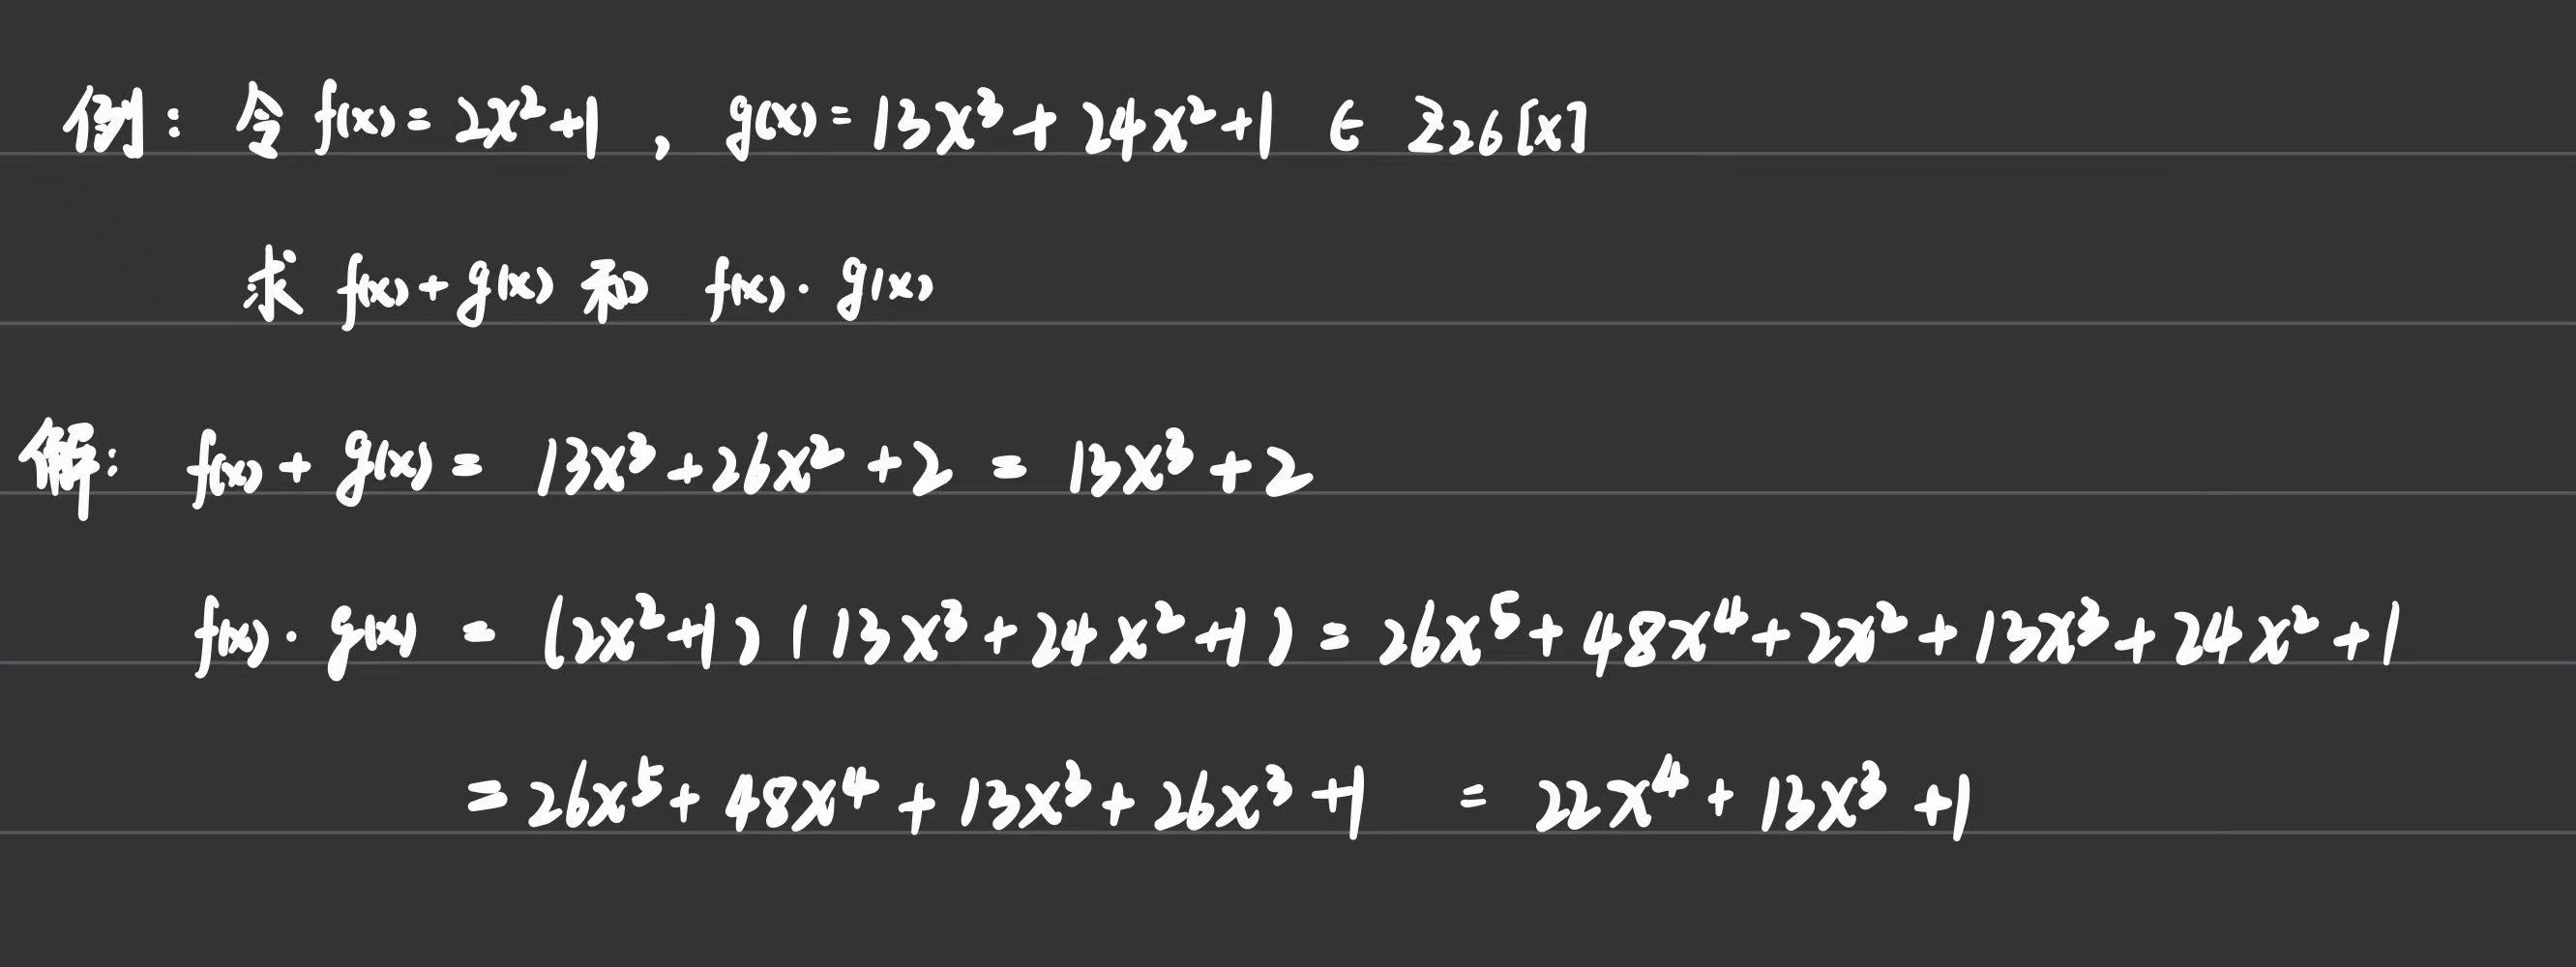 例: 令 f(x)=2x²+1 , g(x)=13x³+24x²+1 ∈ Z26[x]
求 f(x)+g(x) 和 f(x)·g(x)
解: f(x)+g(x)= 13x³+26x²+2 = 13x³+2
f(x)·g(x) = (2x²+1)(13x³+24x²+1)=26x⁵+48x⁴+2x²+13x³+24x²+1
=26x⁵+48x⁴+13x³+26x³+1 = 22x⁴+13x³+1